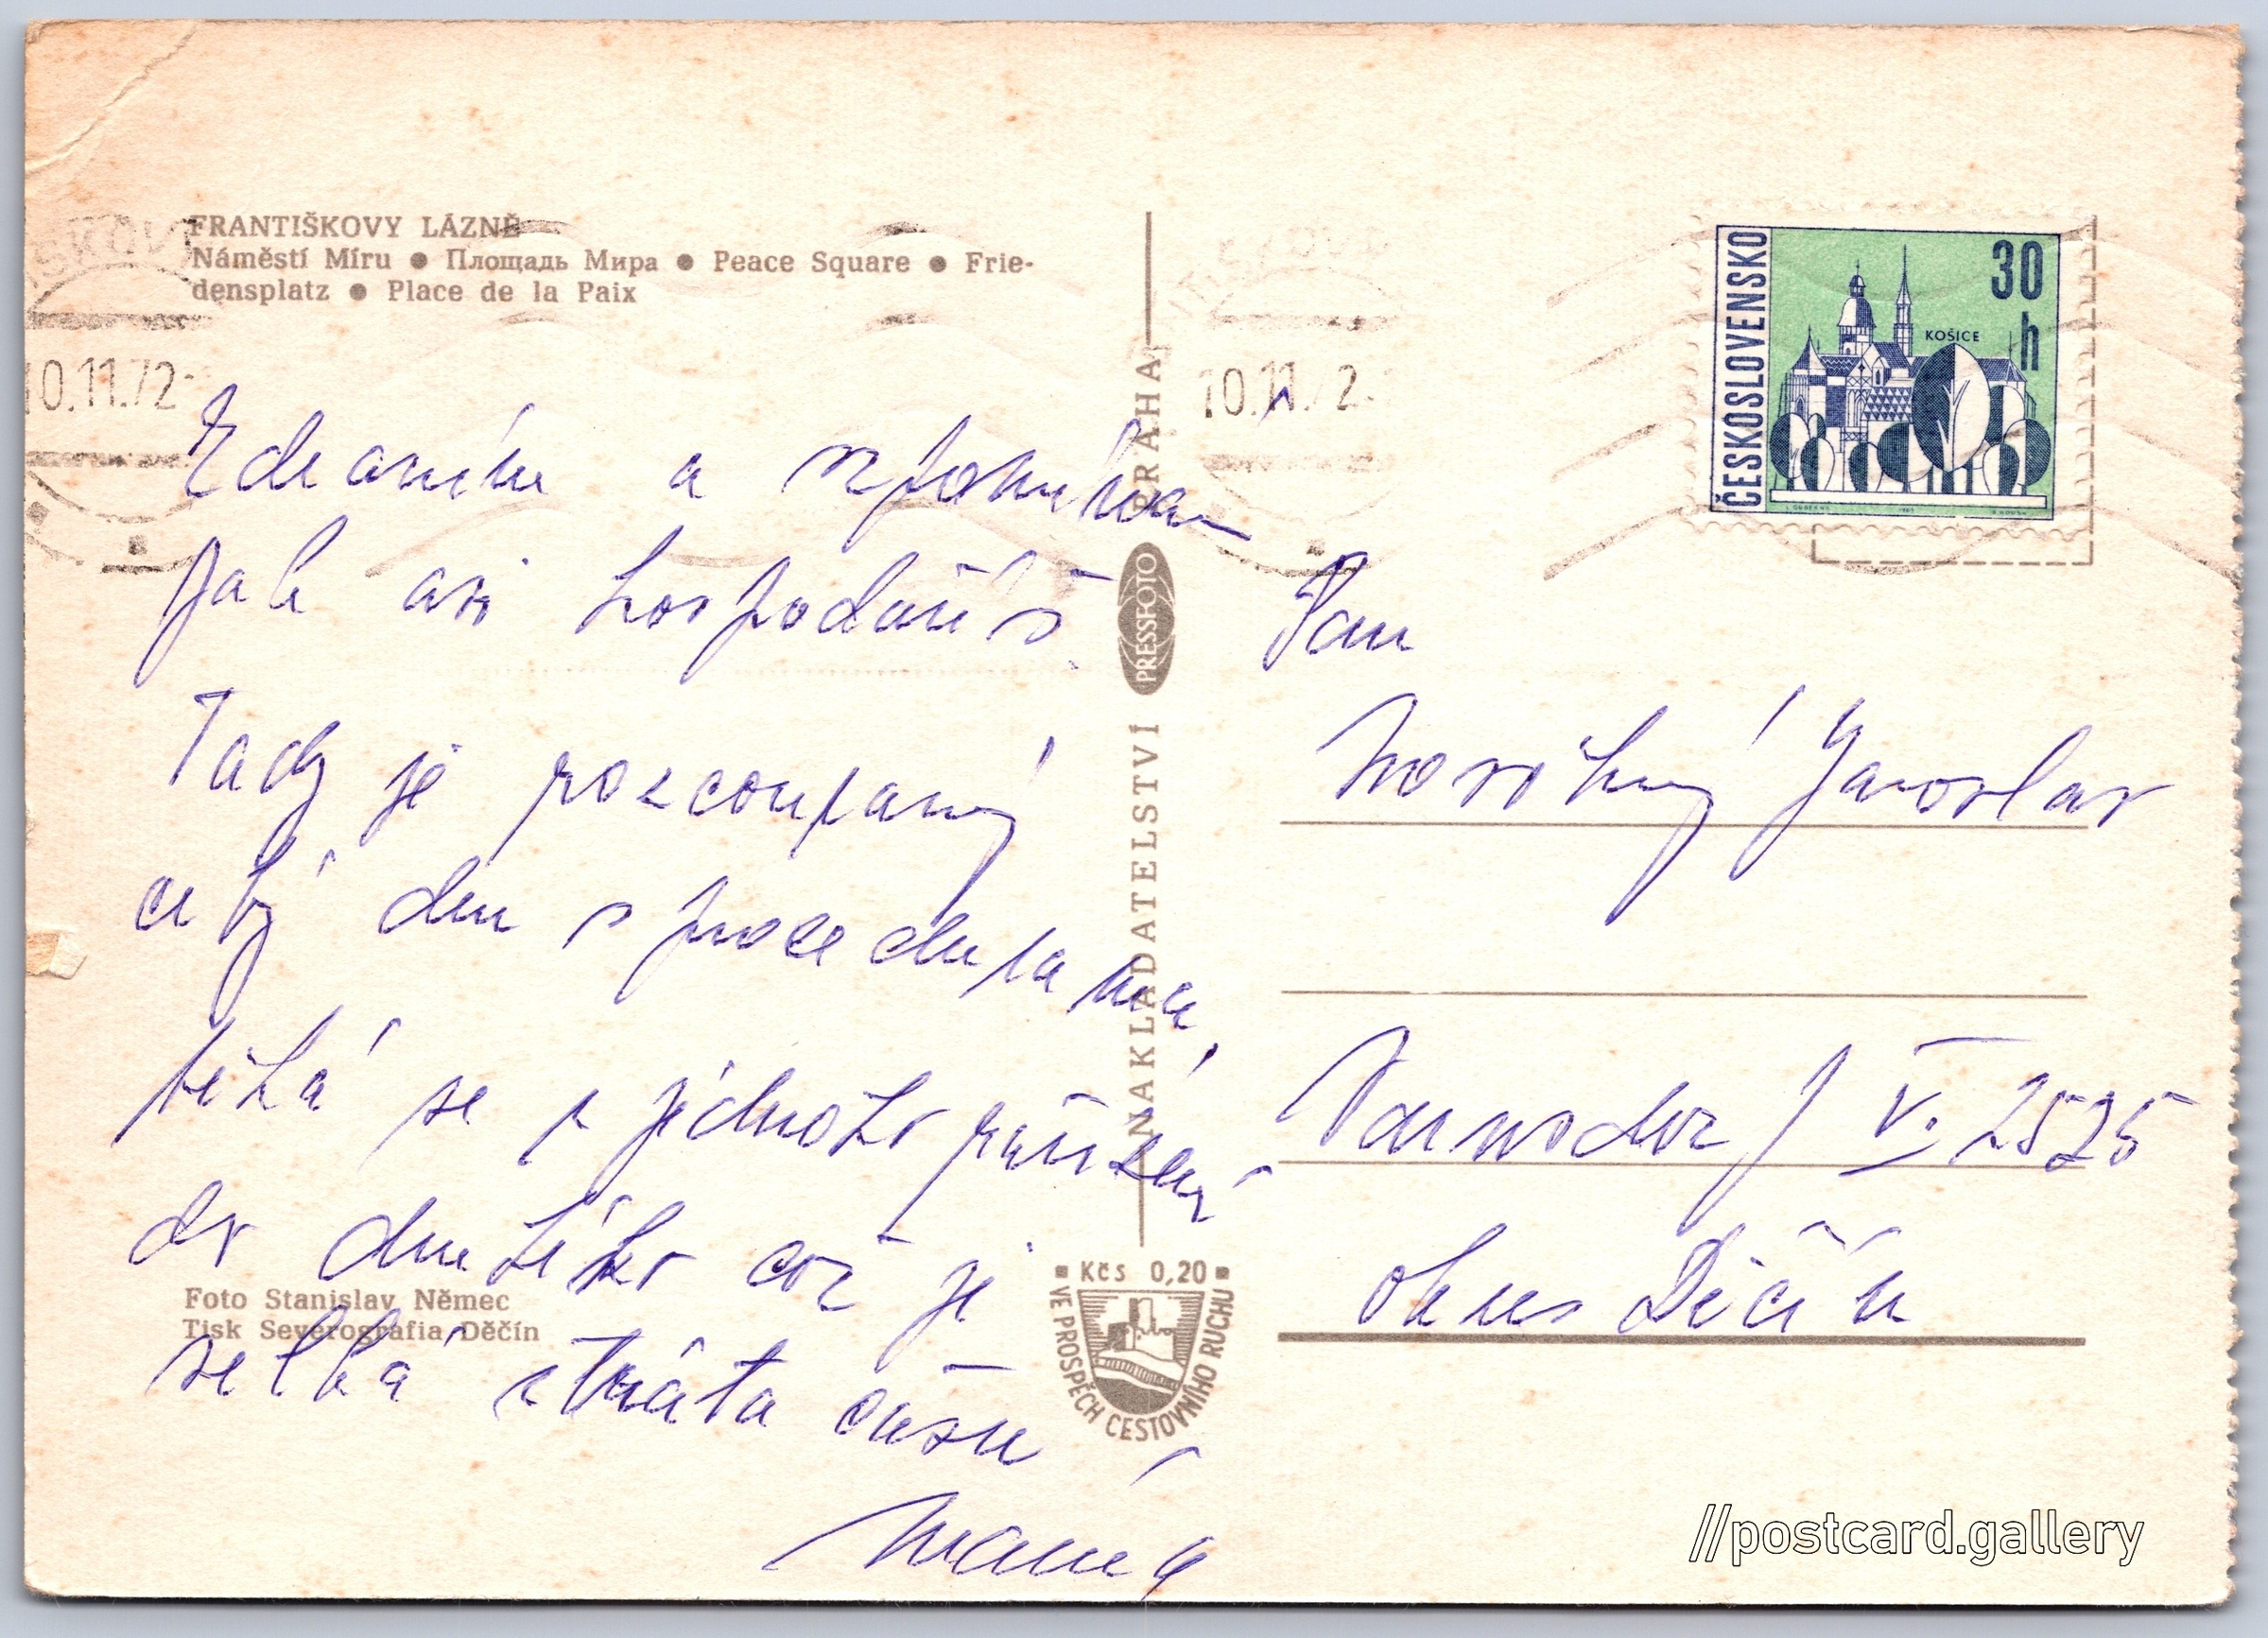 FRANTIŠKOVY LÁZNĚ
Náměstí Míru ● Площадь Мира ● Peace Square ● Frie-
densplatz ● Place de la Paix
10.11.72
Zdravím a vzpomínám
jak asi hospodaříš.
Tady je rozcoupaný
celý den s procedurama,
běhá se z jednoho
do druhého což je
velká ztráta času
Foto Stanislav Němec
Tisk Severografia Děčín
NAKLADATELSTVÍ PRESSFOTO PRAHA
Kčs 0,20
VE PROSPĚCH CESTOVNÍHO RUCHU
10.11.72
ČESKOSLOVENSKO
30 h
KOŠICE
Pan
Novotný Jaroslav
Varnsdorf V. 2525
okres Děčín
//postcard.gallery